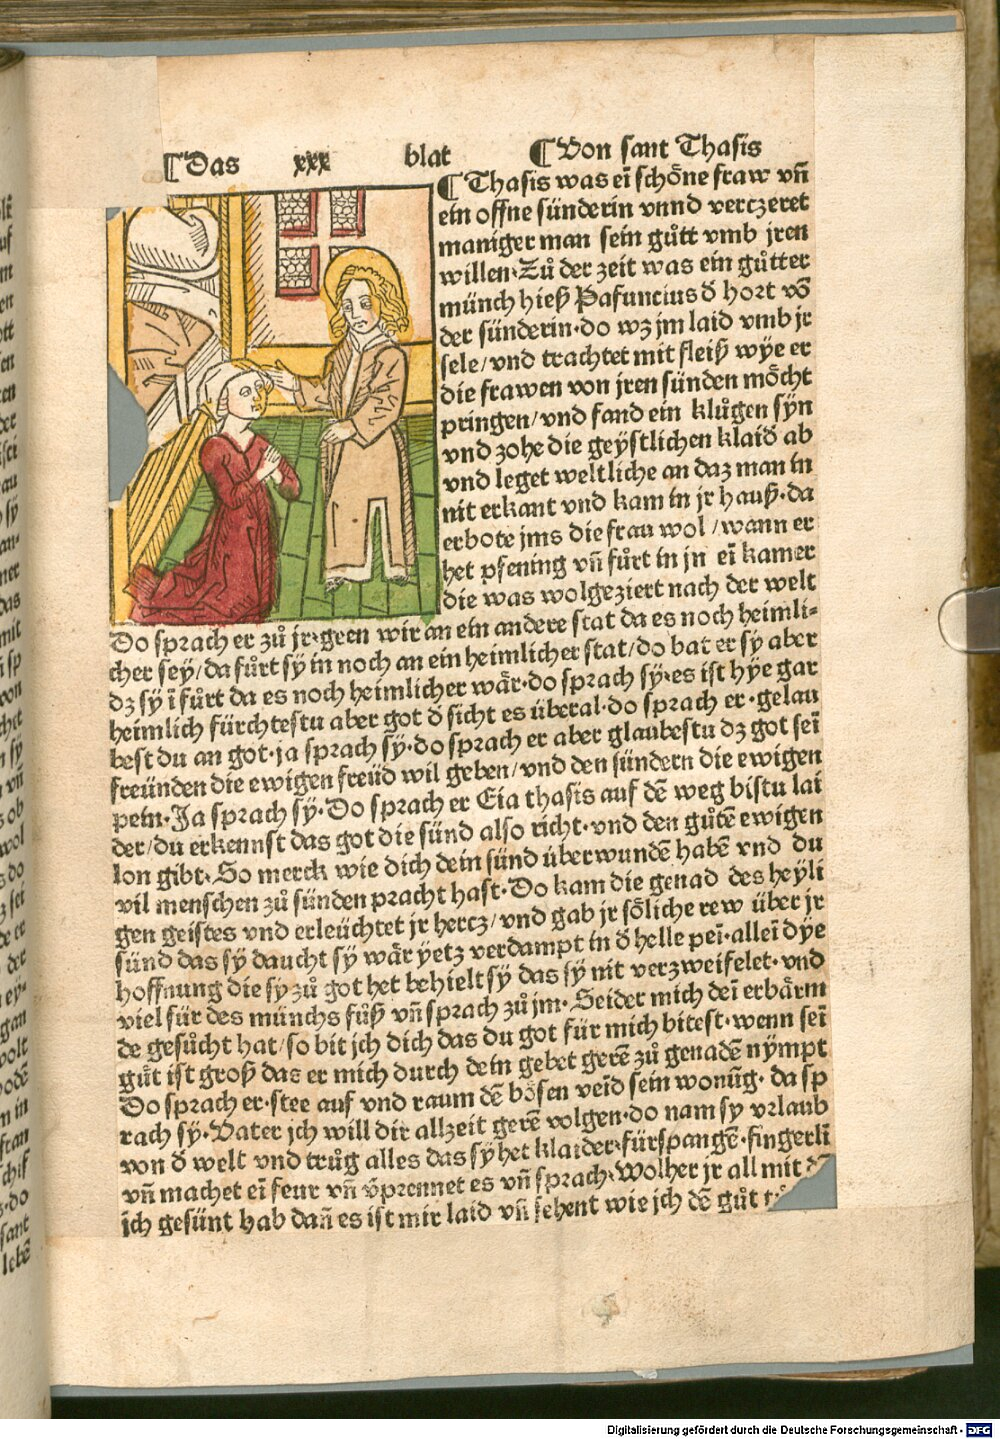 ¶ Das xxx blat ¶ Von sant Thasis
¶ Thasis was eī schoͤne fraw vñ
ein offne sünderin vnnd verczeret
maniger man sein guͦtt vmb jren
willen·Zuͦ der zeit was ein guͦtter
münch hieß Pafuncius ď hort võ
der sünderin·do wz jm laid vmb jr
sele/vnd trachtet mit fleiß wÿe er
die frawen von jren sünden moͤcht
pringen/vnd fand ein kluͦgen sÿn
vnd zohe die geÿstlichen klaid ab
vnd leget weltliche an daz man in
nit erkant vnd kam in jr hauß·da
erbote jms die frau wol/wann er
het pfening vñ fuͦrt in jn eī kamer
die was wolgeziert nach der welt
Do sprach er zuͦ jr·geen wir an ein andere stat da es noch heimli-
cher sey/da fuͦrt sÿ in noch an ein heimlicher stat/do bat er sÿ aber
dz sÿ ī fuͦrt da es noch heimlicher waͤr·do sprach sÿ·es ist hÿe gar
heimlich fürchtestu aber got ď sicht es überal·do sprach er·gelau
best du an got·ja sprach sÿ·do sprach er aber glaubestu dz got seī
freünden die ewigen freüd wil geben/vnd den sündern die ewigen
pein·Ja sprach sÿ·Do sprach er Eia thasis auf dē weg bistu lai
der/du erkennst das got die sünd also richt·vnd den guͦtē ewigen
lon gibt·So merck wie dich dein sünd überwundē habē vnd du
vil menschen zuͦ sünden pracht hast·Do kam die genad des heÿli
gen geistes vnd erleüchtet jr hercz/vnd gab jr soͤliche rew über jr
sünd das sÿ daucht sÿ waͤr ÿetz verdampt in ď helle peī·alleī dÿe
hoffnung die sy zuͦ got het behielt sÿ das sÿ nit verzweifelet·vnd
viel für des münchs fuͦß vñ sprach zuͦ jm·Seider mich deī erbaͤrm
de gesuͦcht hat/so bit jch dich das du got für mich bitest·wenn seī
guͤt ist groß das er mich durch dein gebet gerē zuͦ genadē nÿmpt
Do sprach er·stee auf vnd raum dē boͤsen veīd sein wonūg·da sp
rach sÿ·Vater jch will dir allzeit gerē volgen·do nam sy vrlaub
von ď welt vnd truͦg alles das sÿ het klaider·fürspangē·fingerlī
vñ machet eī feur vñ v̈prennet es vñ sprach·Wolher jr all mit
ich gesünt hab dañ es ist mir laid vñ sehent wie jch dē guͦt
Digitalisierung gefördert durch die Deutsche Forschungsgemeinschaft - DFG